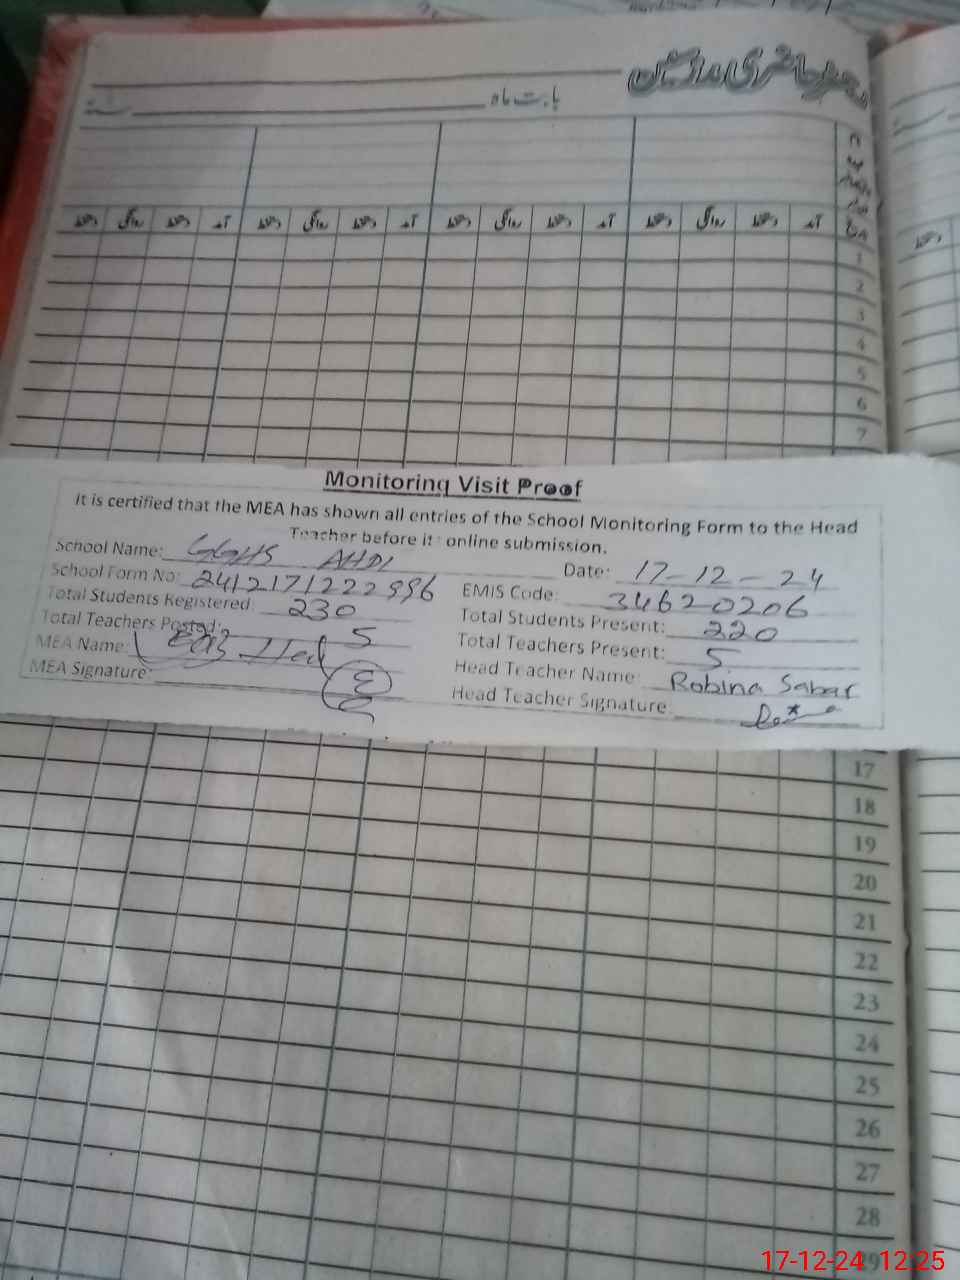 رجسٹر حاضری مدرسین
بابت ماہ سنہ
آمد دستخط روانگی دستخط آمد دستخط روانگی دستخط آمد دستخط روانگی دستخط آمد دستخط روانگی دستخط
1
2
3
4
5
6
7
Monitoring Visit Proof
It is certified that the MEA has shown all entries of the School Monitoring Form to the Head
Teacher before it: online submission.
School Name: GGHS AHDI Date: 17-12-24
School Form No: 2412171222996 EMIS Code: 34620206
Total Students Registered: 230 Total Students Present: 220
Total Teachers Posted: 5 Total Teachers Present: 5
MEA Name: Head Teacher Name: Robina Sabar
MEA Signature: Head Teacher Signature:
17
18
19
20
21
22
23
24
25
26
27
28
29
17-12-24 12:25